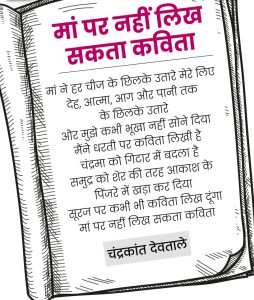 मां पर नहीं लिख
सकता कविता
मां ने हर चीज के छिलके उतारे मेरे लिए
देह, आत्मा, आग और पानी तक
के छिलके उतारे
और मुझे कभी भूखा नहीं सोने दिया
मैंने धरती पर कविता लिखी है
चंद्रमा को गिटार में बदला है
समुद्र को शेर की तरह आकाश के
पिंजरे में खड़ा कर दिया
सूरज पर कभी भी कविता लिख दूंगा
मां पर नहीं लिख सकता कविता
चंद्रकांत देवताले